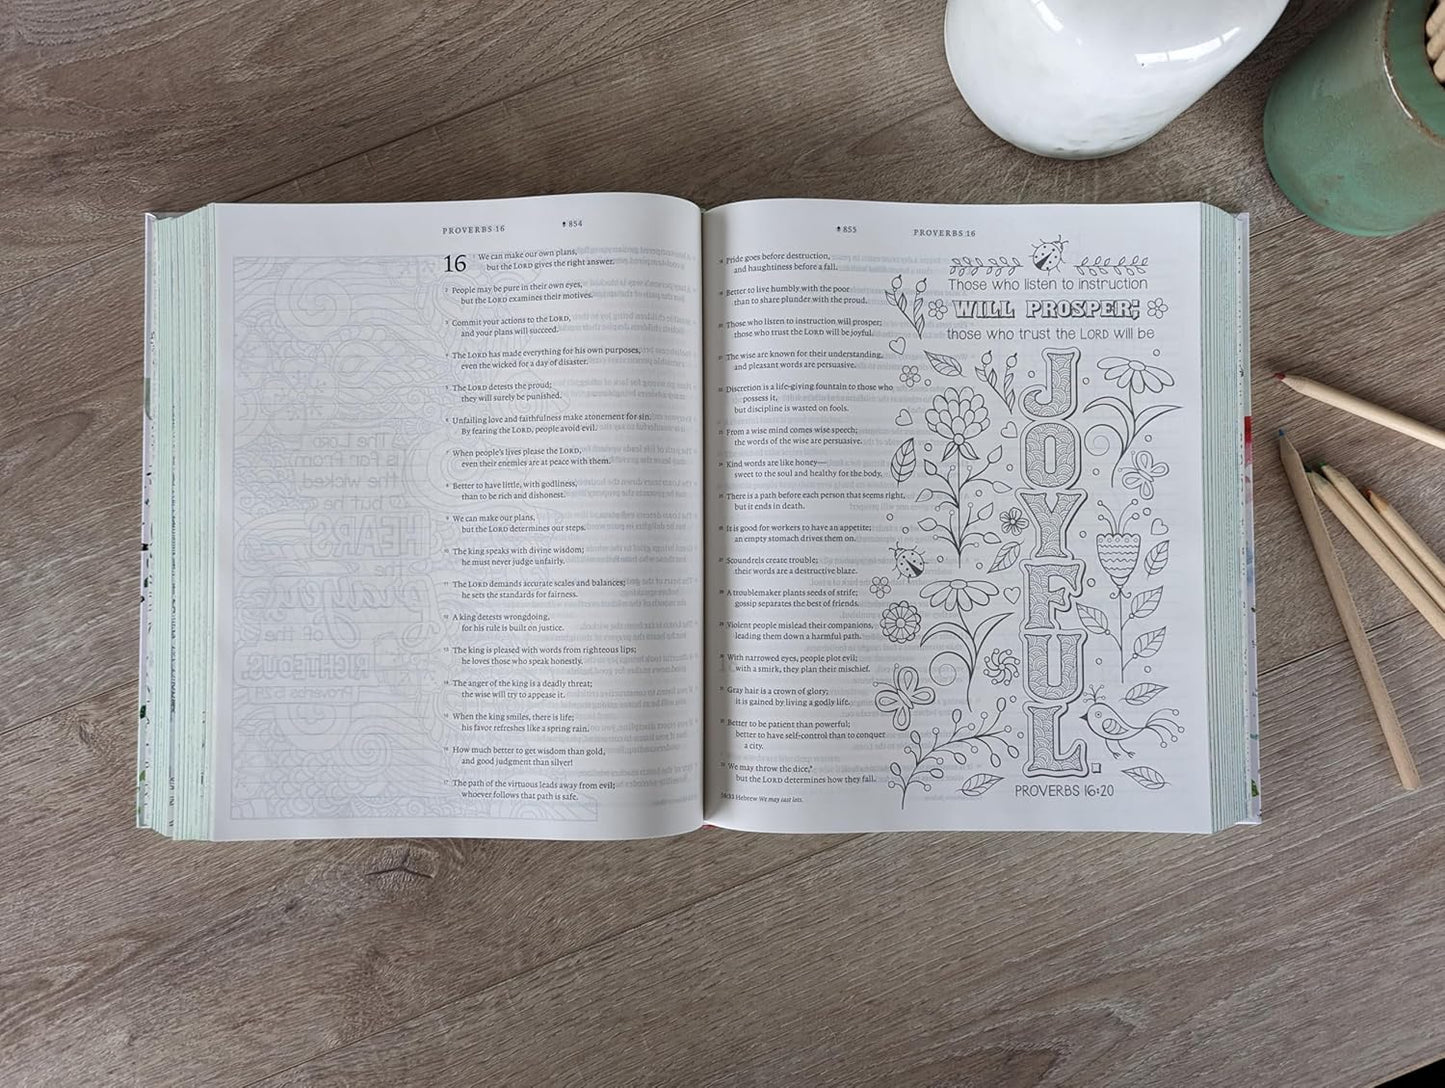 PROVERBS 16
854
16 1 We can make our own plans,
but the LORD gives the right answer.
2 People may be pure in their own eyes,
but the LORD examines their motives.
3 Commit your actions to the LORD,
and your plans will succeed.
4 The LORD has made everything for his own purposes,
even the wicked for a day of disaster.
5 The LORD detests the proud;
they will surely be punished.
6 Unfailing love and faithfulness make atonement for sin.
By fearing the LORD, people avoid evil.
7 When people's lives please the LORD,
even their enemies are at peace with them.
8 Better to have little, with godliness,
than to be rich and dishonest.
9 We can make our plans,
but the LORD determines our steps.
10 The king speaks with divine wisdom;
he must never judge unfairly.
11 The LORD demands accurate scales and balances;
he sets the standards for fairness.
12 A king detests wrongdoing,
for his rule is built on justice.
13 The king is pleased with words from righteous lips;
he loves those who speak honestly.
14 The anger of the king is a deadly threat;
the wise will try to appease it.
15 When the king smiles, there is life;
his favor refreshes like a spring rain.
16 How much better to get wisdom than gold,
and good judgment than silver!
17 The path of the virtuous leads away from evil;
whoever follows that path is safe.
855
PROVERBS 16
18 Pride goes before destruction,
and haughtiness before a fall.
19 Better to live humbly with the poor
than to share plunder with the proud.
20 Those who listen to instruction will prosper;
those who trust the LORD will be joyful.
21 The wise are known for their understanding,
and pleasant words are persuasive.
22 Discretion is a life-giving fountain to those who
possess it,
but discipline is wasted on fools.
23 From a wise mind comes wise speech;
the words of the wise are persuasive.
24 Kind words are like honey—
sweet to the soul and healthy for the body.
25 There is a path before each person that seems right,
but it ends in death.
26 It is good for workers to have an appetite;
an empty stomach drives them on.
27 Scoundrels create trouble;
their words are a destructive blaze.
28 A troublemaker plants seeds of strife;
gossip separates the best of friends.
29 Violent people mislead their companions,
leading them down a harmful path.
30 With narrowed eyes, people plot evil;
with a smirk, they plan their mischief.
31 Gray hair is a crown of glory;
it is gained by living a godly life.
32 Better to be patient than powerful;
better to have self-control than to conquer
a city.
33 We may throw the dice,*
but the LORD determines how they fall.
16:33 Hebrew We may cast lots.
Those who listen to instruction
WILL PROSPER;
those who trust the LORD will be
JOYFUL.
PROVERBS 16:20